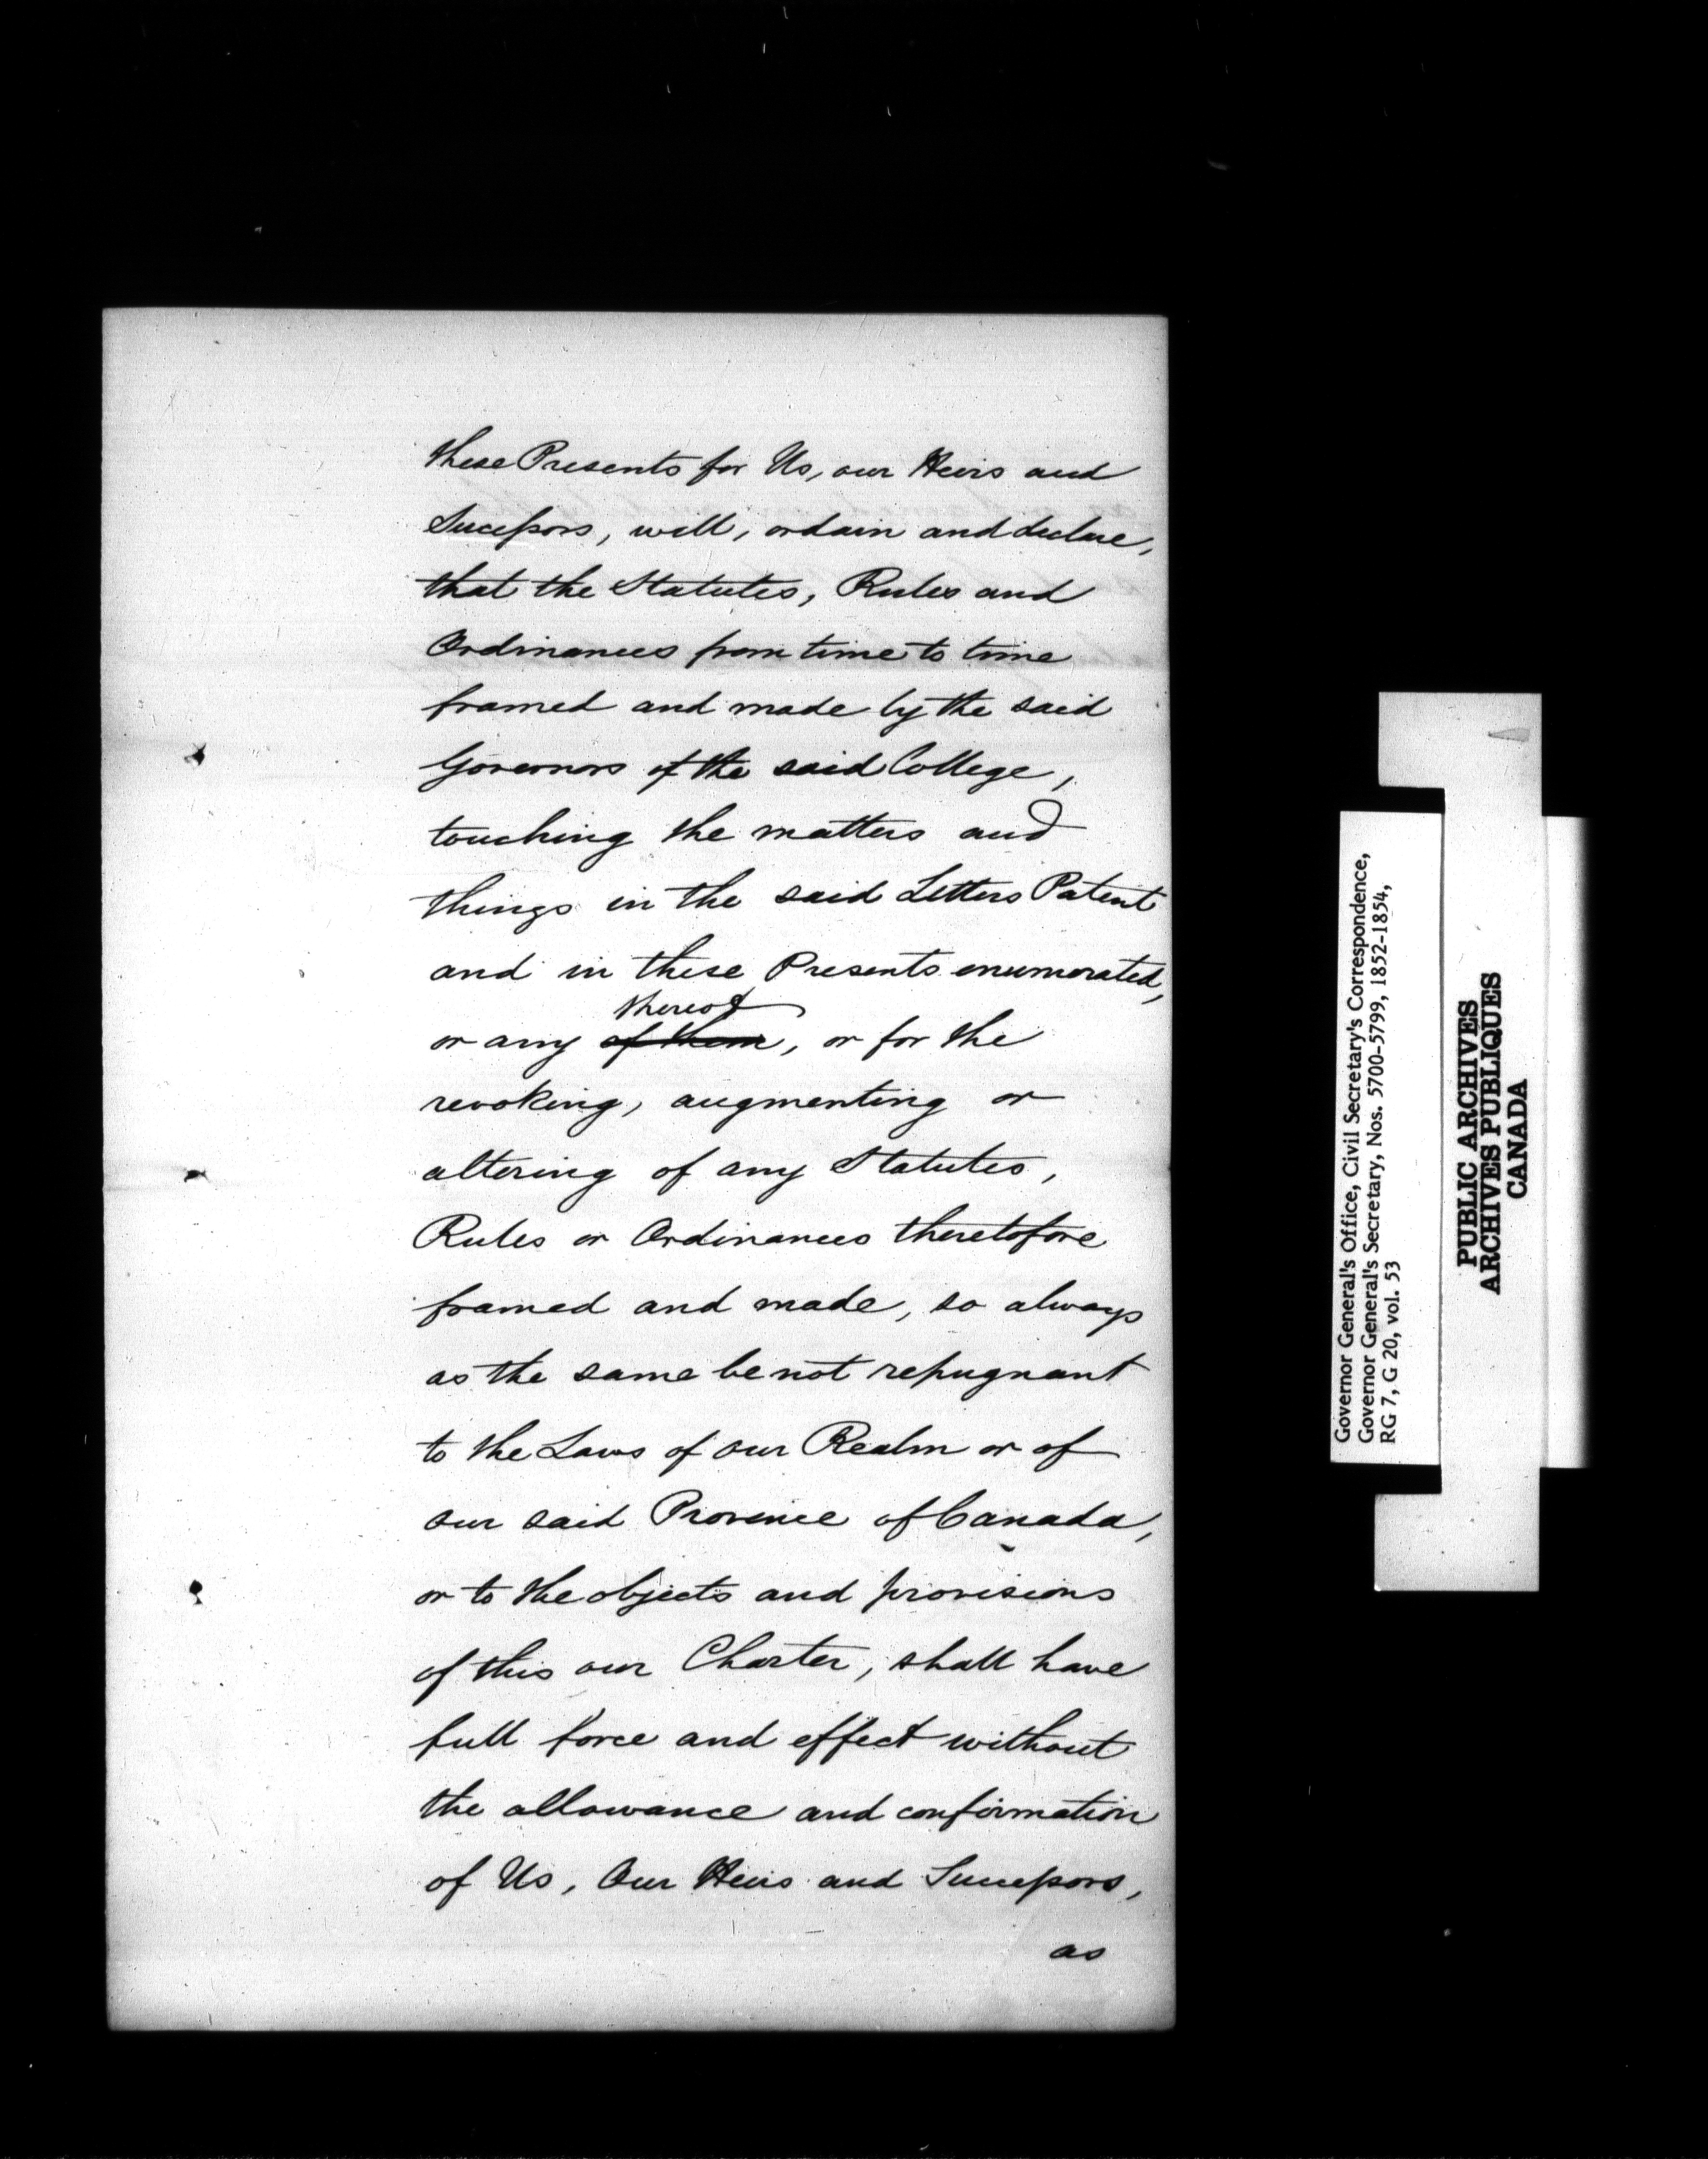 these Presents for Us, our Heirs and
Sucessors, will, ordain and declare,
that the Statutes, Rules and
Ordinances from time to time
framed and made by the said
Governors of the said College,
touching the matters and
things in the said Letters Patent
and in these Presents enumerated,
thereof
or any of them, or for the
revoking, augmenting or
altering of any Statutes,
Rules or Ordinances theretofore
framed and made, so always
as the same be not repugnant
to the Laws of our Realm or of
our said Province of Canada,
or to the objects and provisions
of this our Charter, shall have
full force and effect without
the allowance and confirmation
of Us, Our Heirs and Successors,
as
Governor General's Office, Civil Secretary's Correspondence,
Governor General's Secretary, Nos. 5700-5799, 1852-1854,
RG 7, G 20, vol. 53
PUBLIC ARCHIVES
ARCHIVES PUBLIQUES
CANADA